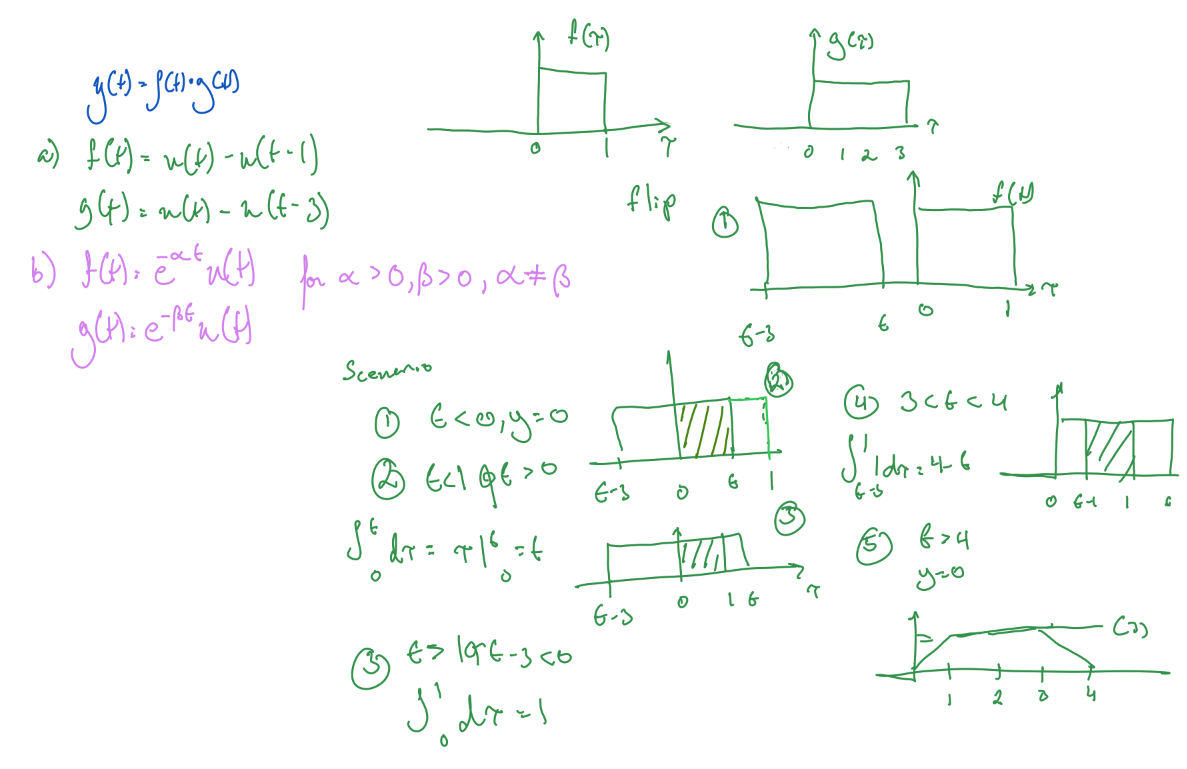 y(t) = f(t) · g(t)
a) f(t) = u(t) - u(t-1)
g(t) = u(t) - u(t-3)
b) f(t) = e^{-αt} u(t) for α > 0, β > 0, α ≠ β
g(t) = e^{-βt} u(t)
f(τ)
0 1 τ
g(τ)
0 1 2 3 τ
flip
①
f(t)
t-3 t 0 1 τ
Scenario
① t < 0, y = 0
② t < 1 t > 0
∫_0^t dτ = τ|_0^t = t
②
t-3 0 t 1
③
t-3 0 1 t τ
③ t > 1 t-3 < 0
∫_0^1 dτ = 1
④ 3 < t < 4
∫_{t-3}^1 1 dτ = 4-t
0 1
⑤ t > 4
y = 0
1 2 3 4